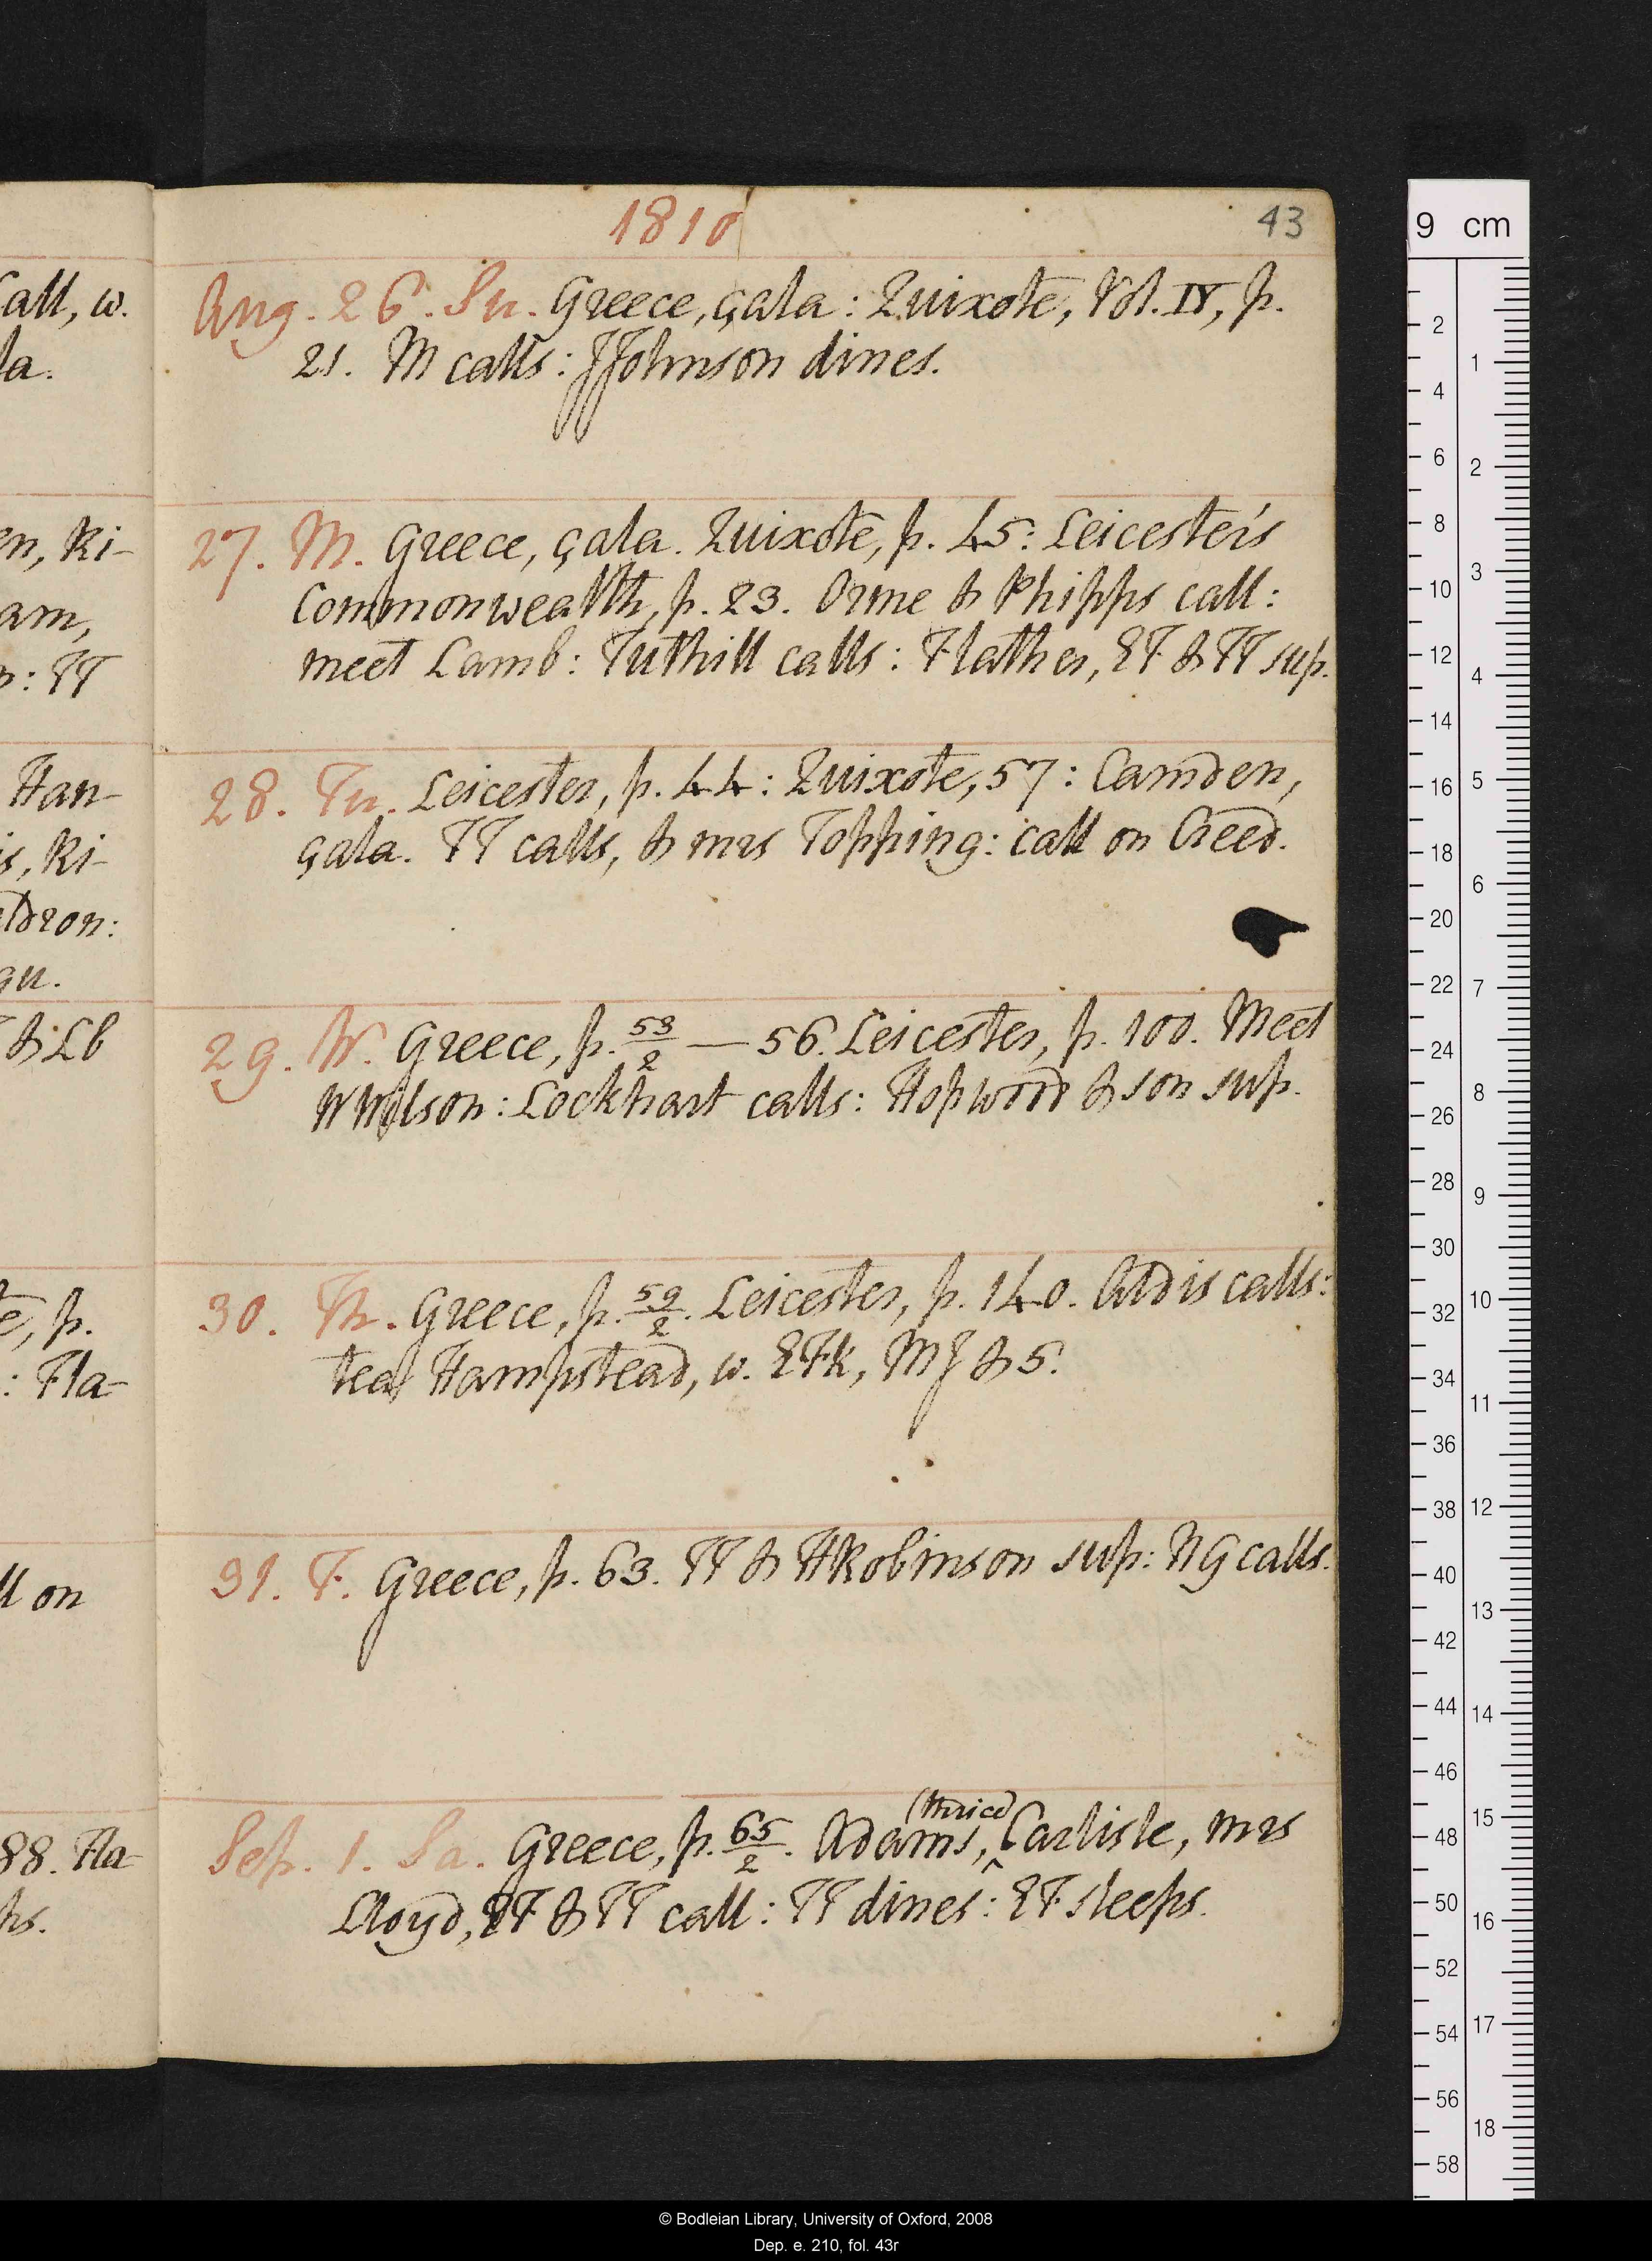 1810
43
Aug. 26. Su. Greece, çala: Quixote, Vol. IV, p.
21. M calls: JJohnson dines.
27. M. Greece, çala. Quixote, p. 45: Leicester's
Commonwealth, p. 23. Orme & Phipps call:
meet Lamb: Tuthill calls: Flather, EF & TT sup.
28. Tu. Leicester, p. 44: Quixote, 57: Camden,
çala. TT calls, & mrs Topping: call on Creed.
29. W. Greece, p. 53/2 — 56. Leicester, p. 100. Meet
W Wilson: Lockhart calls: Hopwood & son sup.
30. Th. Greece, p. 59/2. Leicester, p. 140. Aldis calls:
tea Hampstead, w. EFK, MJ & 5.
31. F. Greece, p. 63. TT & HRobinson sup: NG calls.
Sep. 1. Sa. Greece, p. 65/2. Adams, (thrice) Carlisle, mrs
Lloyd, EF & TT call: TT dines: EF sleeps.
all, w.
la.
en, Ri-
am,
: TT
Han-
is, Ri-
ldron:
gu.
& Lb
e, p.
: Fla-
ll on
88. Fla-
ps.
9 cm
2
4
6
8
10
12
14
16
18
20
22
24
26
28
30
32
34
36
38
40
42
44
46
48
50
52
54
56
58
1
2
3
4
5
6
7
8
9
10
11
12
13
14
15
16
17
18
© Bodleian Library, University of Oxford, 2008
Dep. e. 210, fol. 43r